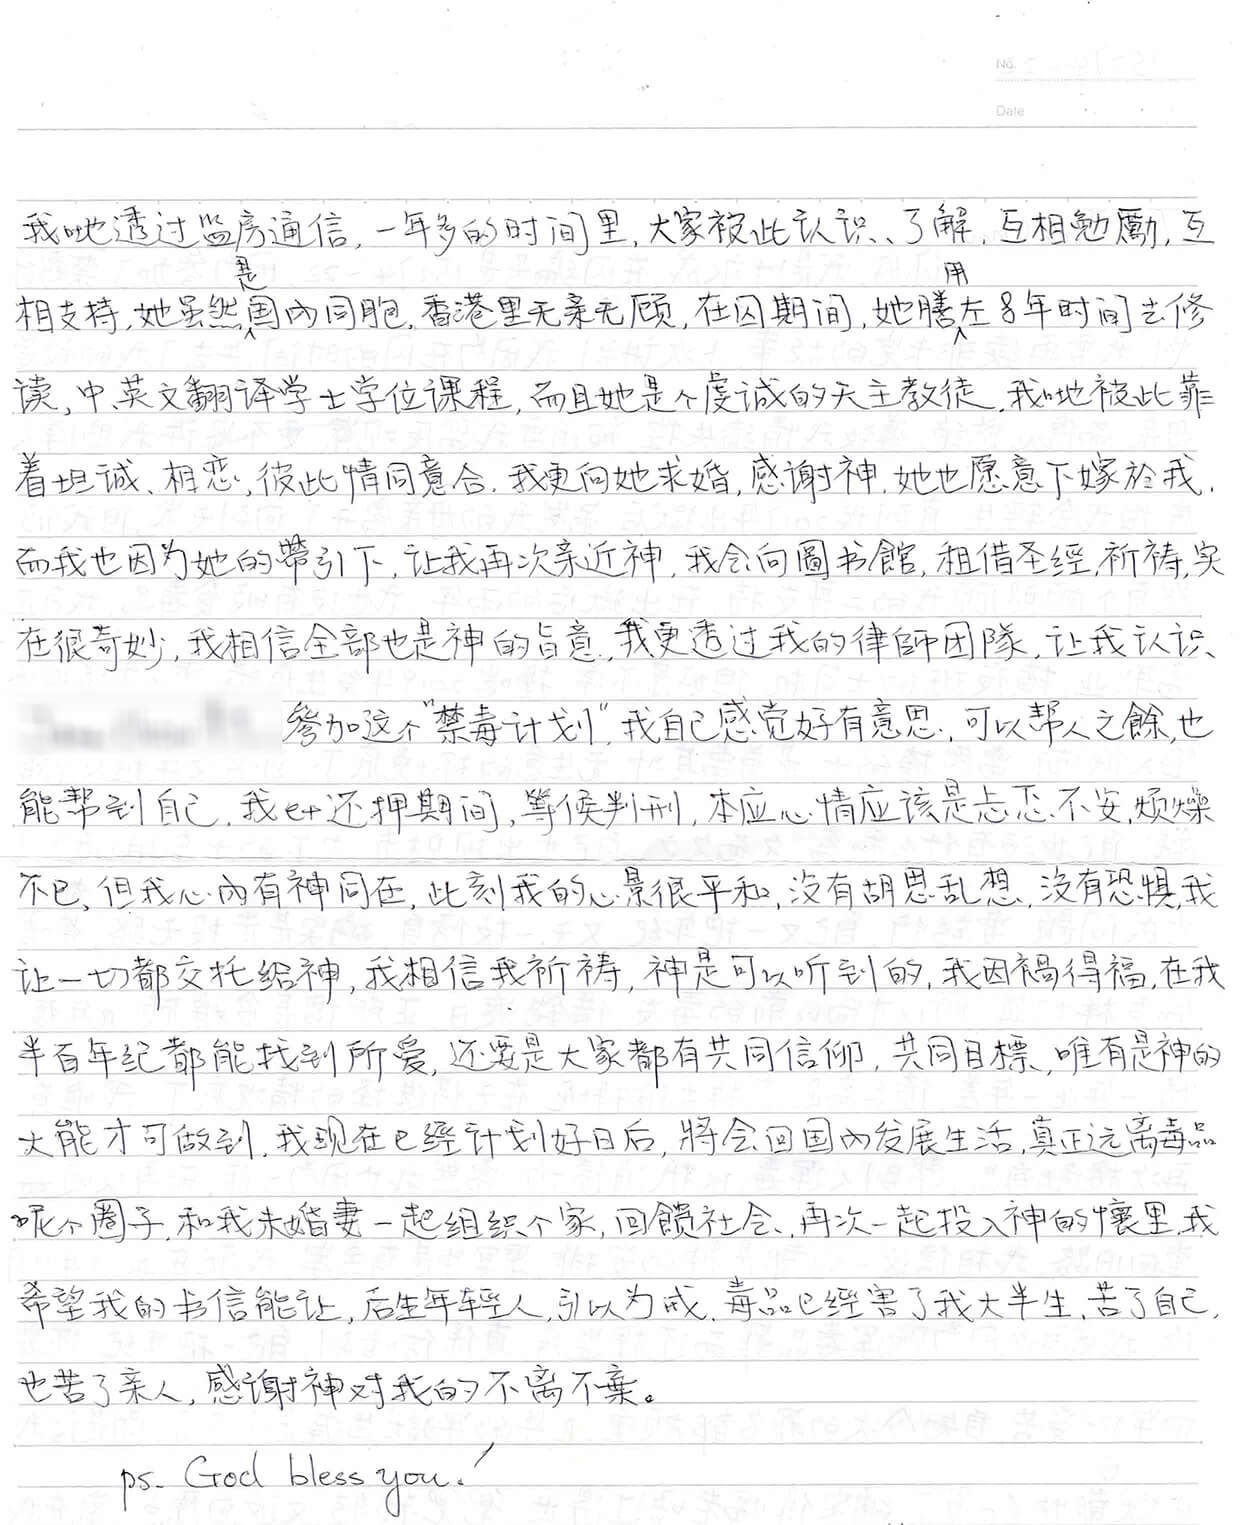 No.
Date
我哋透过监房通信,一年多的时间里,大家被此认识、了解,互相勉勵,互
是 用
相支持,她虽然国内同胞,香港里无亲无顾,在囚期间,她騰左8年时间去修
读,中、英文翻译学士学位课程,而且她是个虔诚的天主教徒,我哋被此靠
着坦诚、相恋,彼此情同意合,我更向她求婚,感谢神,她也愿意下嫁於我,
而我也因为她的帶引下,让我再次亲近神,我会向圖书館,租借圣经,祈祷,实
在很奇妙,我相信全部也是神的旨意,我更透过我的律師团隊,让我认识、
參加这个"禁毒计划",我自己感觉好有意思,可以帮人之餘,也
能帮到自己,我吔还押期间,等候判刑,本应心情应该是忐忑不安,烦燥
不已,但我心内有神同在,此刻我的心景很平和,没有胡思乱想,没有恐惧,我
让一切都交托给神,我相信我祈祷,神是可以听到的,我因禍得福,在我
半百年纪都能找到所爱,还要是大家都有共同信仰,共同目標,唯有是神的
大能才可做到,我现在已经计划好日后,將会回国内发展生活,真正远离毒品
呢个圈子,和我未婚妻一起组织个家,回饋社会,再次一起投入神的懷里,我
希望我的书信能让,后生年轻人,引以为戒,毒品已經害了我大半生,苦了自己,
也苦了亲人,感谢神对我的不离不棄。
ps. God bless you!